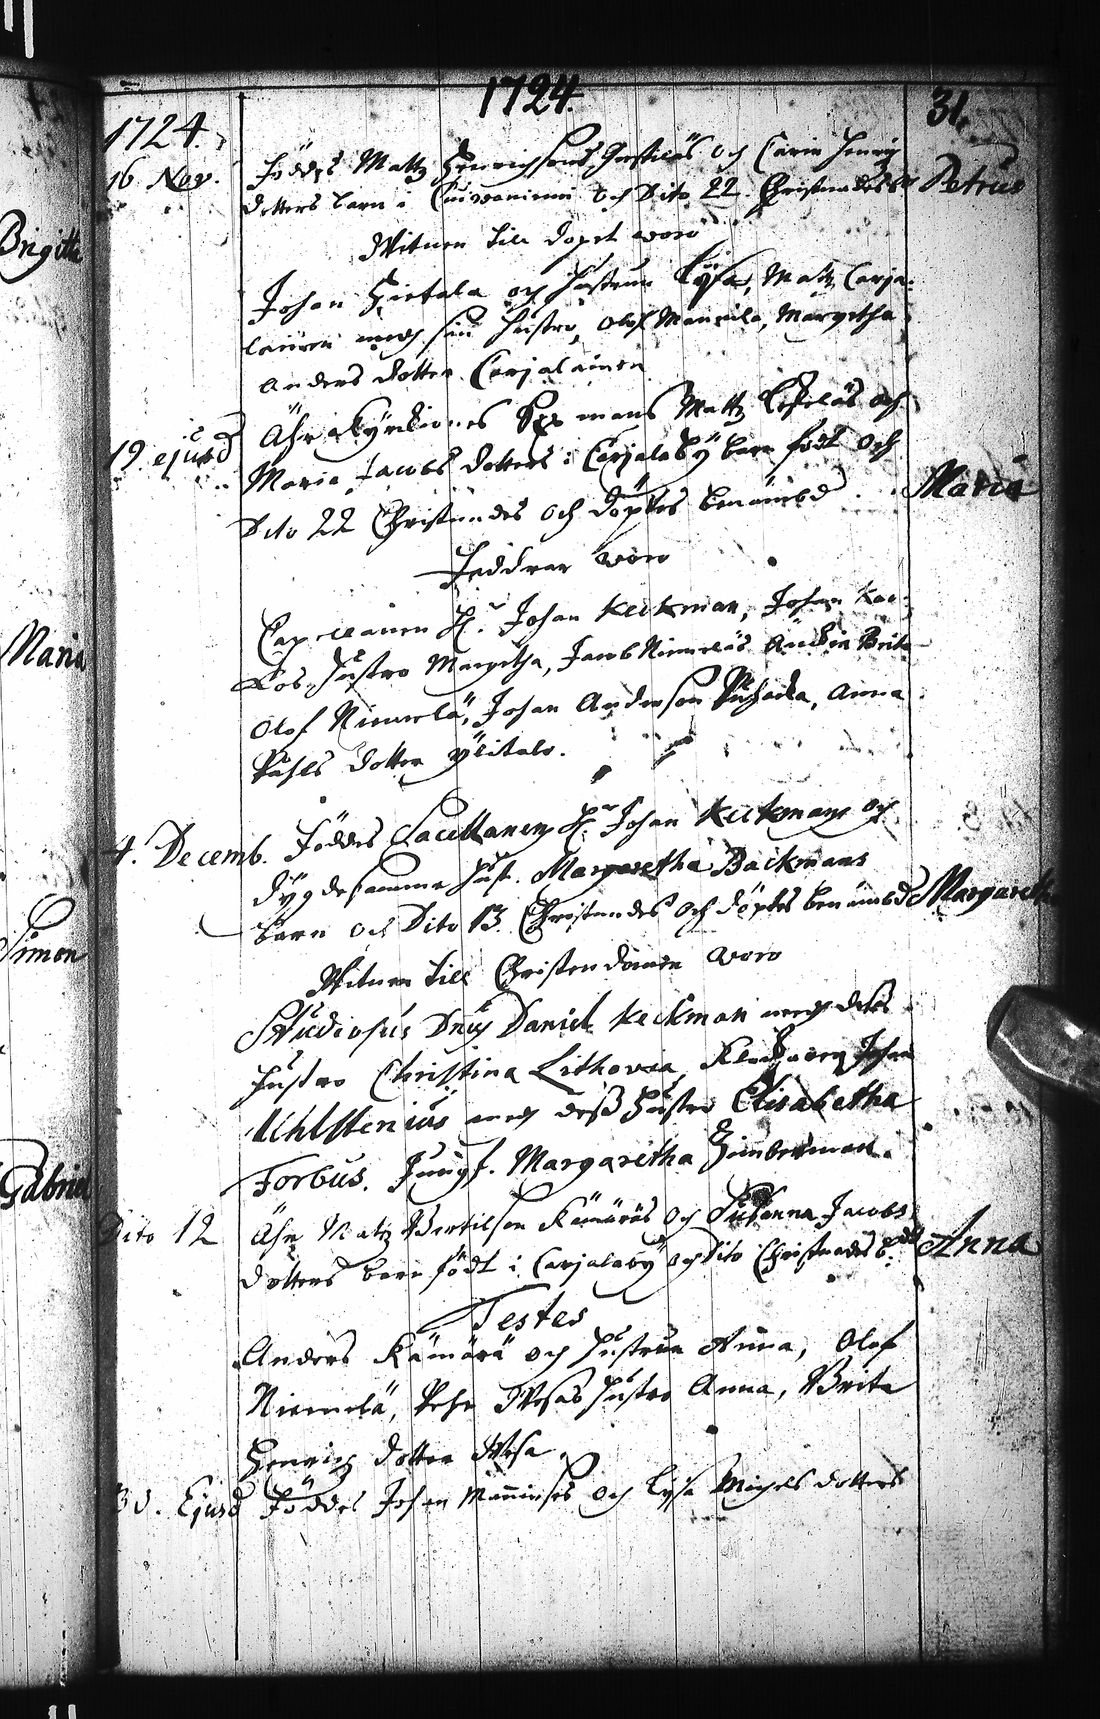 1724.
31.
1724.
16 Nov. Föddes Mattz Henrichsons Hostilas och Carin Henrich
dotters barn i Cuiwaniemi och Dito 22. Christnades bd Petrus
Witnen till dopet woro
Johan Hietala och hustrun Lÿsa, Matz Carja-
lainen med sin hustro, Olof Mannila, Margetha
Anders dotter Carjalainen
19 ejusd Ähr Kÿrkiones Sex mans Mattz och
Maria Jacobs dotters i Carjalabÿ barn födt och
Dito 22 Christnades och döptes benämbd Maria
Faddrar woro
Capellanen H:r Johan Keckman, Johan
hustro Margetha, Jacob Niemeläs Änckia Brita
Olof Niemelä, Johan Anderson Puhacka, Anna
Påhls dotter ÿlitalo.
4. Decemb. Föddes Sacellanens H:r Johan Keckmans och
dÿgdesamma hust. Margaretha Backmans
barn och Dito 13. Christnades och döptes benämbd Margaretha
Witnen till Christendomen woro
Studiosus Dnus Daniel Keckman med dess
hustro Christina Lithovia, Klockaren Johan
Uhlstenius med dess hustro Elisabetha
Forbus. Jungf. Margaretha Zimberman.
Dito 12 Ähr Matz Bertilson Kämäräs och Susanna Jacobs
dotters barn födt i Carjalabÿ och Dito Christnades b:d Anna
Testes
Anders Kämärä och hustrun Anna, Olof
Niemelä, Pehr Wesas hustro Anna, Brita
Henrich dotter Wesa.
30. Ejusd Föddes Johan Männises och Lÿsa Michels dotters
Brigitta
Maria
Simon
Gabriel